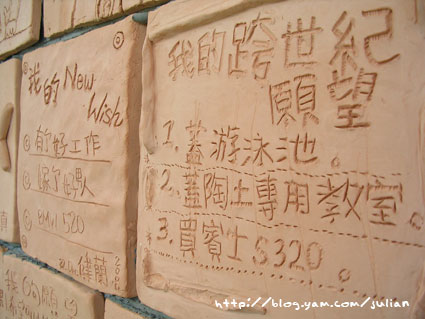 我的 New
Wish
有好工作
嫁了好男
BMW 520
我的跨世紀
願望
1. 蓋游泳池。
2. 蓋陶土專用教室。
3. 買賓士S320。
我的願
http://blog.yam.com/julian